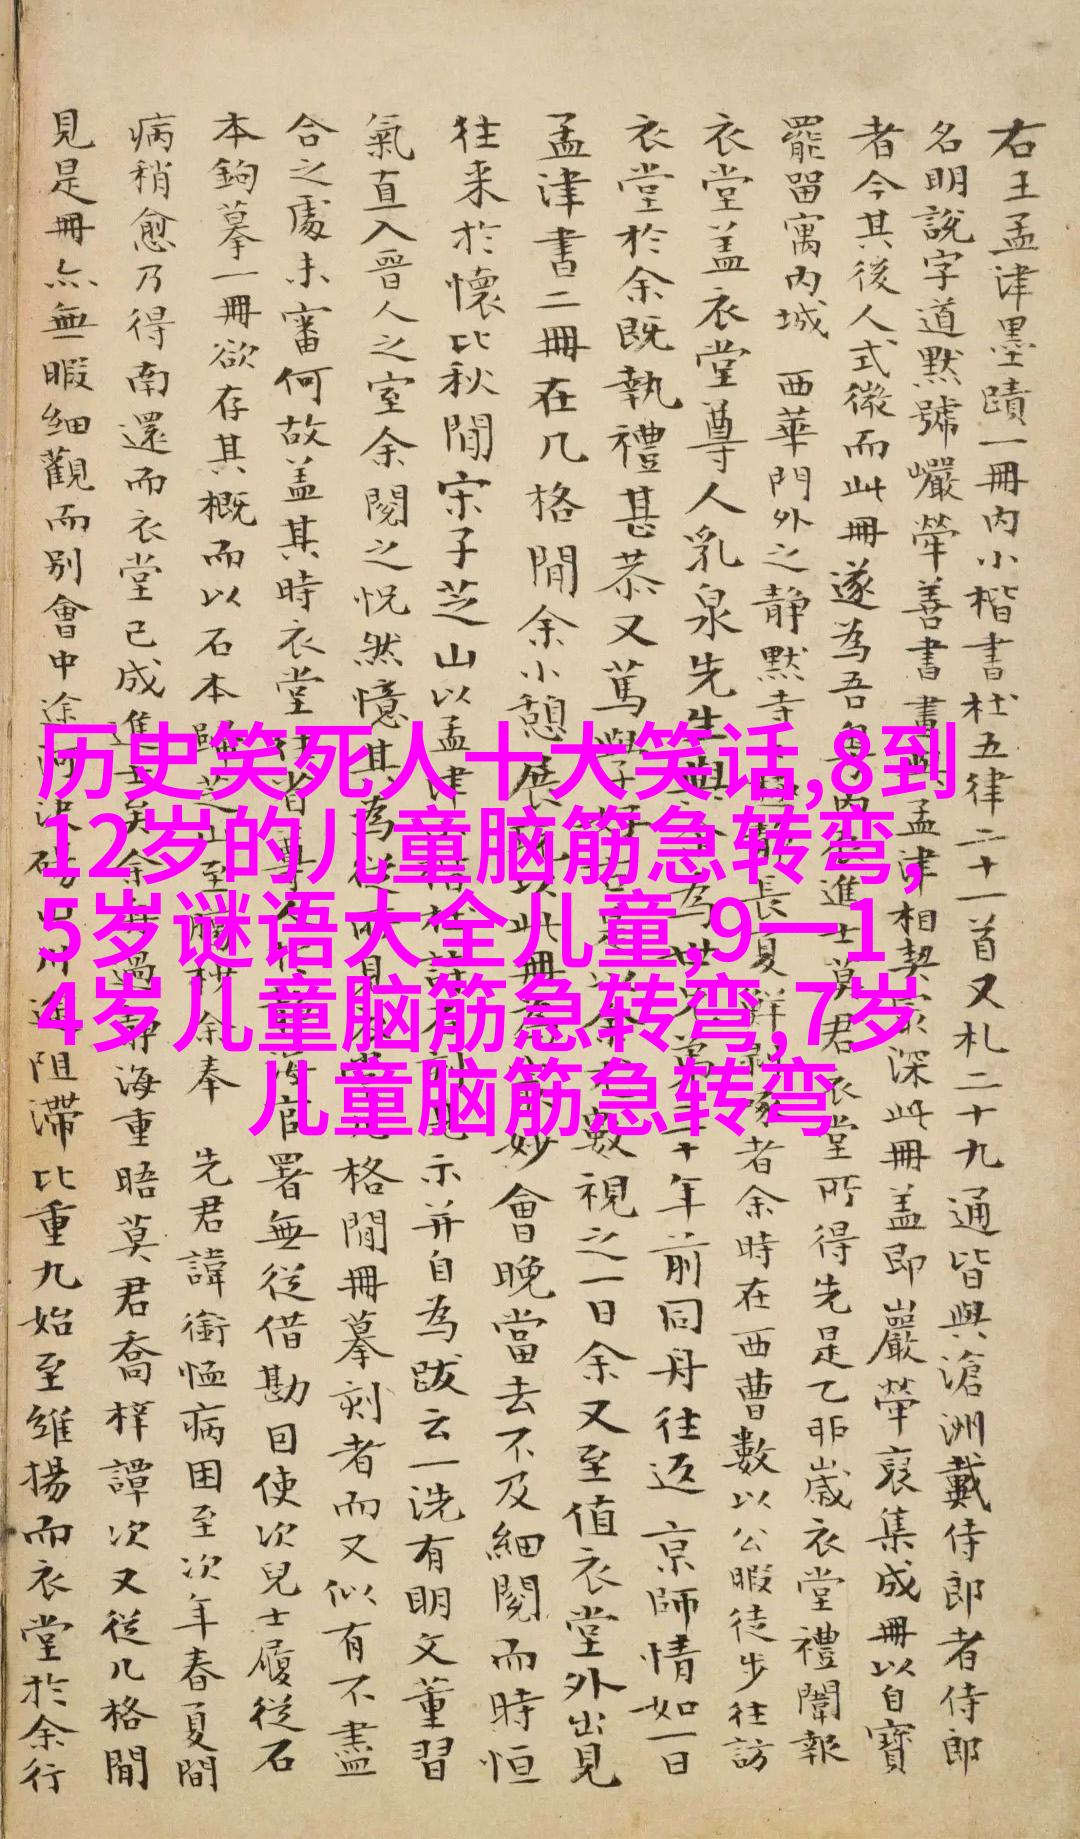 右王孟津墨蹟一冊内小楷書杜五律二十一首又札二十九通皆與滄洲戴侍郎者侍郎
名明說字道默號巖犖善書畫與孟津相契最深此冊蓋即巖犖裒集成冊以自寶
者今其後人式微而此冊遂為吾粵
罷留寓内城 西華門外之靜默寺
衣堂蓋衣堂尊人乳泉先生與
衣堂於余既執禮甚恭又篤
孟津書二冊在几格間余小憩
往来於懷比秋間宋子芝山以孟津
氣直入晉人之室余閱之怳然憶其為從
合之處未審何故蓋其時衣堂
本鉤摹一冊欲存其概而以石本歸芝
病稍愈乃得南還而衣堂已成進士矣余
見是冊亦無暇细觀而别會中途
历史笑死人十大笑话,8到
12岁的儿童脑筋急转弯,
5岁谜语大全儿童,9一1
4岁儿童脑筋急转弯,7岁
儿童脑筋急转弯
進士莫君衣堂所得先是乙卯歲衣堂禮闈報
者余時在西曹數以公暇徒步往訪
年前同舟往返 京師情如一日
數視之一日余又至值衣堂外出見
妙會晚當去不及細閱而時恒
示并自為跋云一洗有明文董習
格間冊摹刻者而又似有不盡
署無從借勘因使次兒士履從石
余奉 先君諱銜恤病困至次年春夏間
海重晤莫君喬梓譚次又從几格間
阻滯比重九始至維揚而衣堂於余行